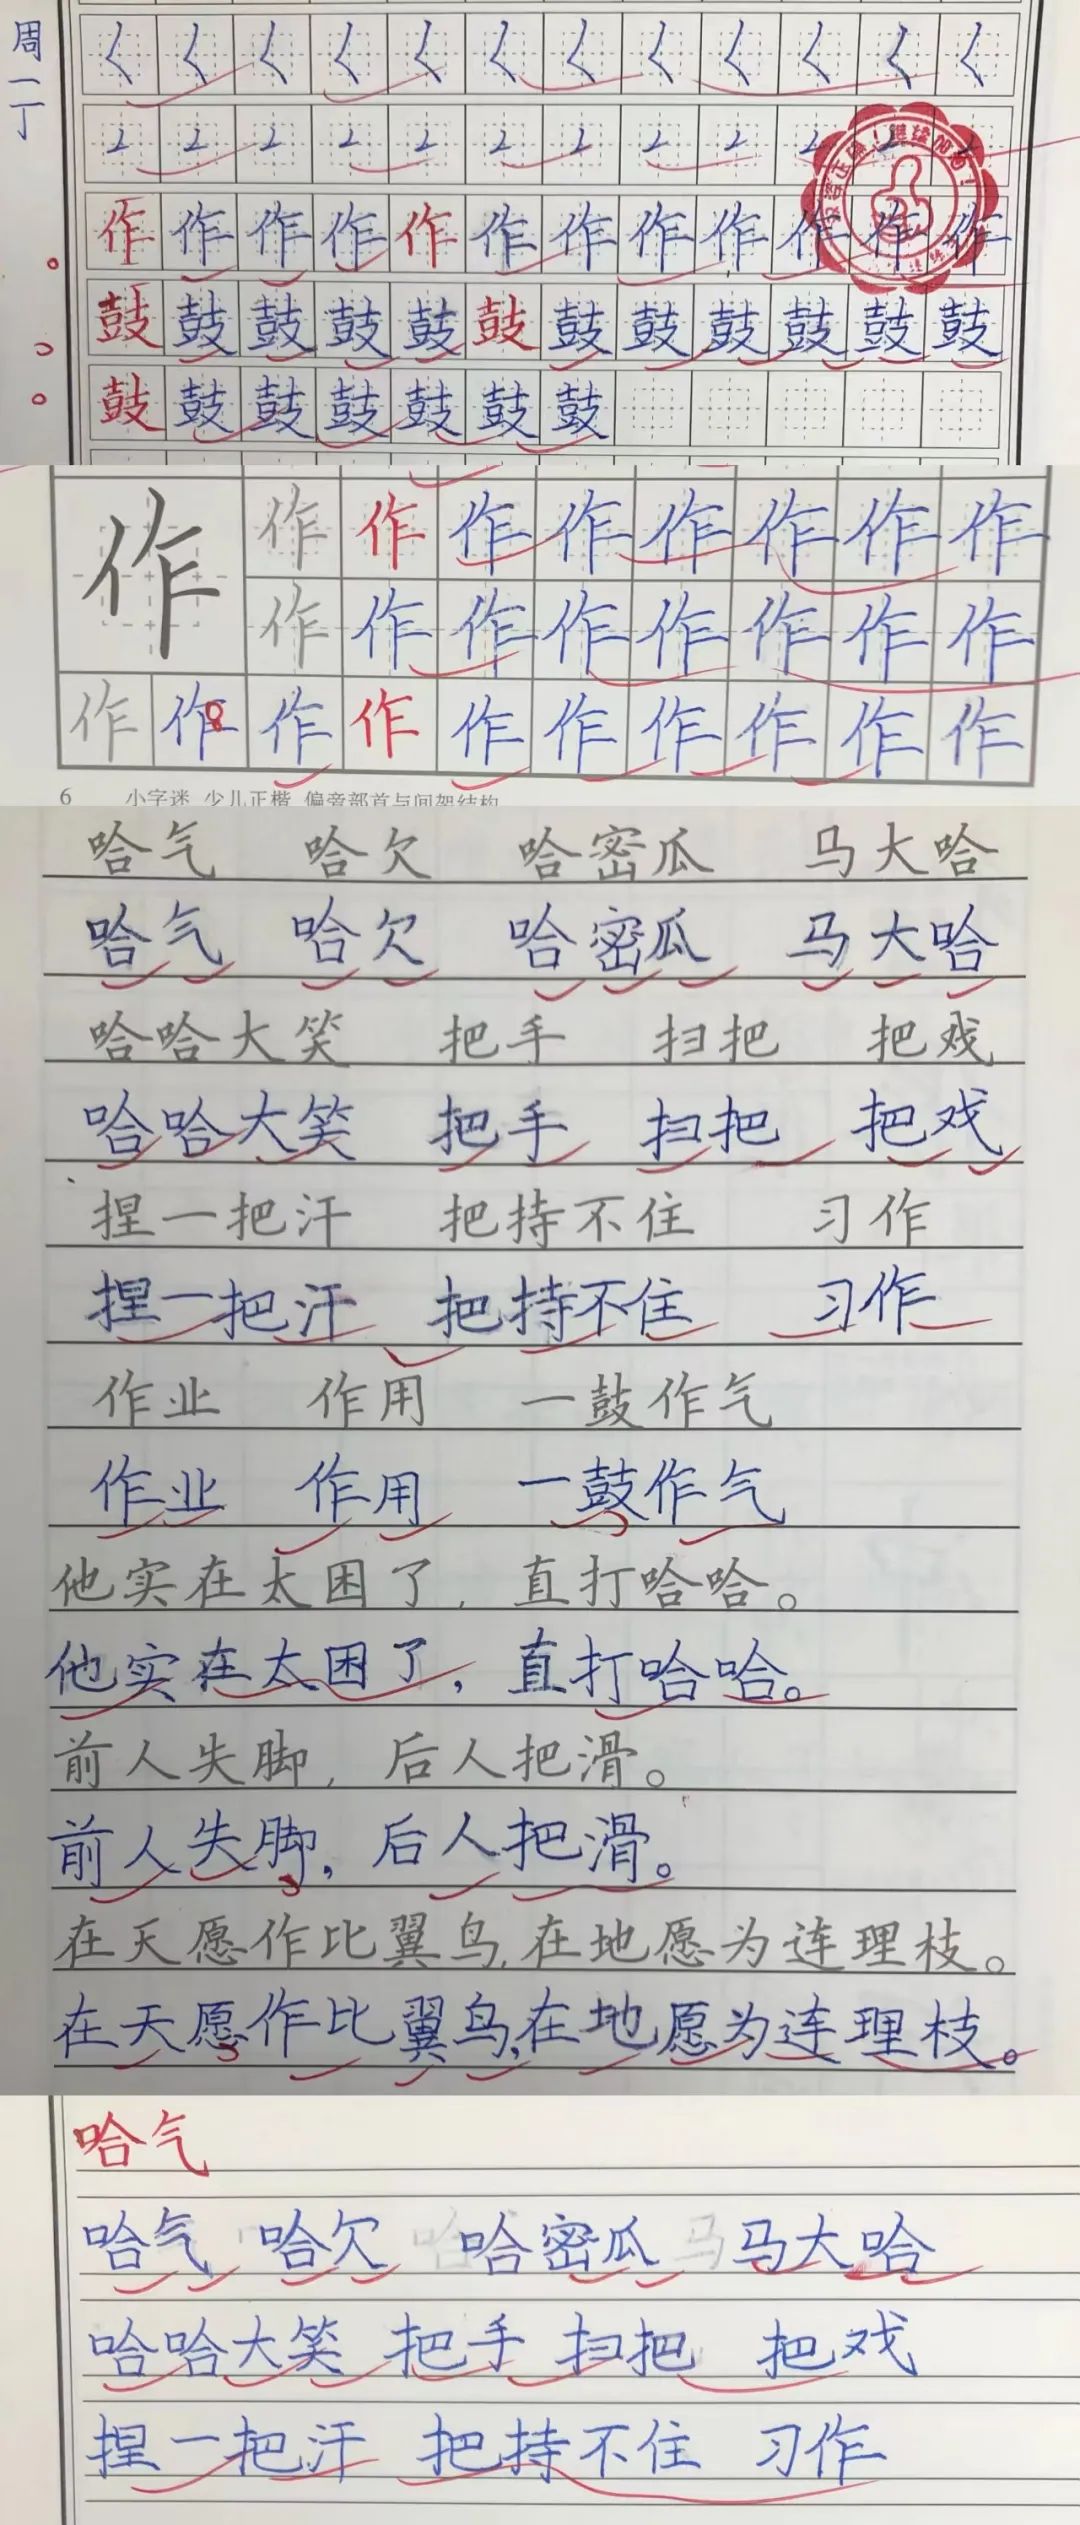 周一丁
く く く く く く く く く く く く
作 作 作 作 作 作 作 作 作 作 作 作
鼓 鼓 鼓 鼓 鼓 鼓 鼓 鼓 鼓 鼓 鼓 鼓
鼓 鼓 鼓 鼓 鼓 鼓 鼓
作 作 作 作 作 作 作 作 作
作 作 作 作 作 作 作 作
作 作 作 作 作 作 作 作 作 作
6 小字迷 少儿正楷 偏旁部首与间架结构
哈气 哈欠 哈密瓜 马大哈
哈气 哈欠 哈密瓜 马大哈
哈哈大笑 把手 扫把 把戏
哈哈大笑 把手 扫把 把戏
捏一把汗 把持不住 习作
捏一把汗 把持不住 习作
作业 作用 一鼓作气
作业 作用 一鼓作气
他实在太困了,直打哈哈。
他实在太困了,直打哈哈。
前人失脚,后人把滑。
前人失脚,后人把滑。
在天愿作比翼鸟,在地愿为连理枝。
在天愿作比翼鸟,在地愿为连理枝。
哈气
哈气 哈欠 哈密瓜 马大哈
哈哈大笑 把手 扫把 把戏
捏一把汗 把持不住 习作